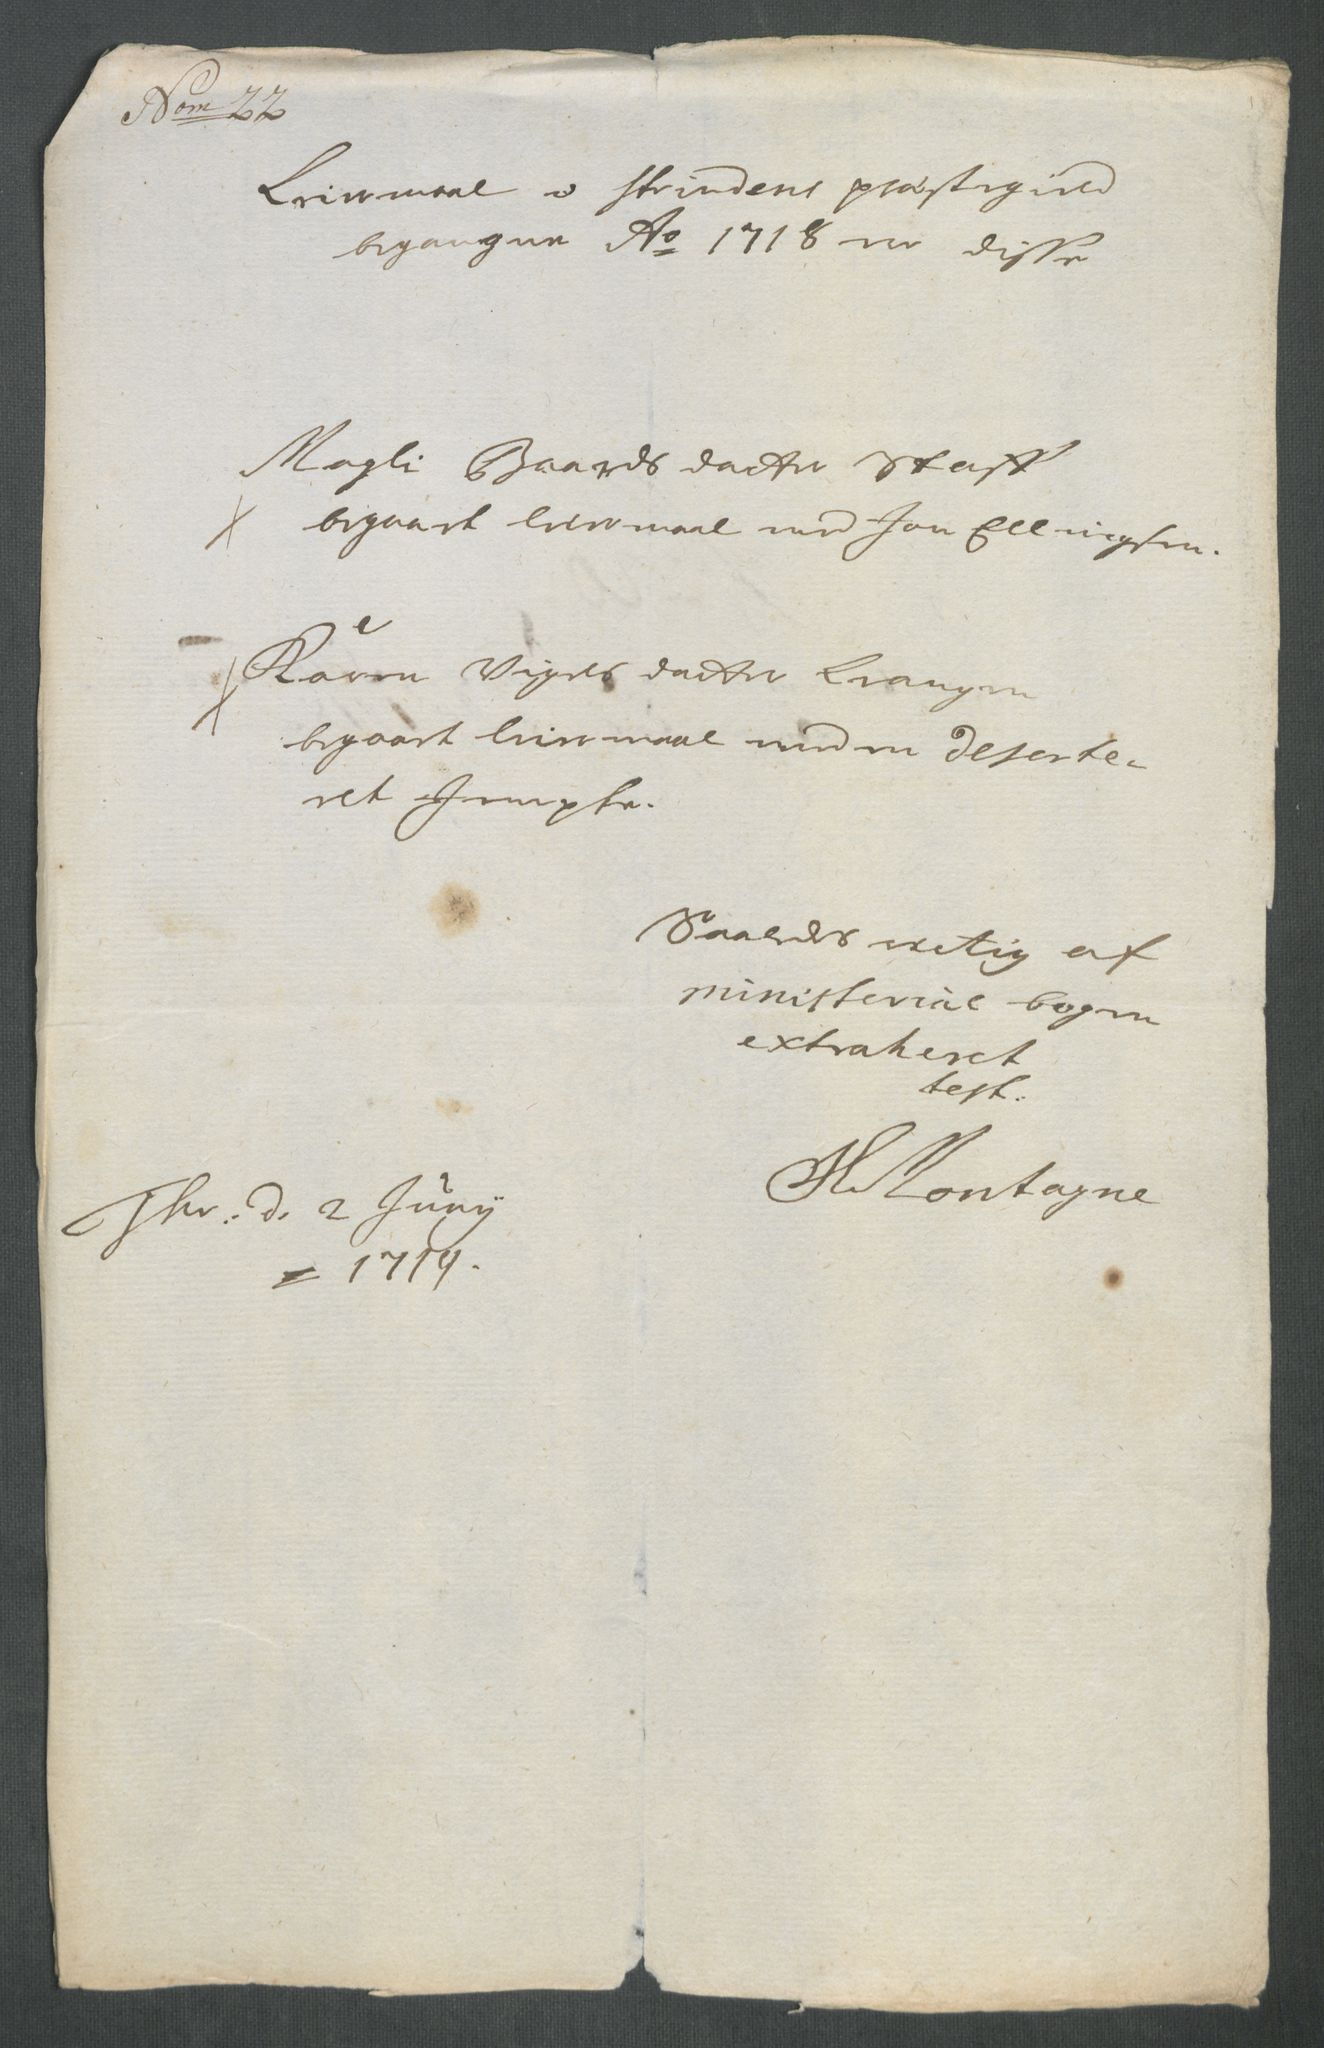 Nom 22
Leiermaal i Strindens præstegield
begangne Ao 1718 er disse
Magli Baards datter Staff
begaaet leiermaal med Jon Ellingsen.
Karen Siges datter Leangen
begaaet leiermaal med en deserte-
ret
Saaledes rigtig af
ministerial bogen
extraheret
test.
H. Montagne
Thr: d. 2 Junij
1719.